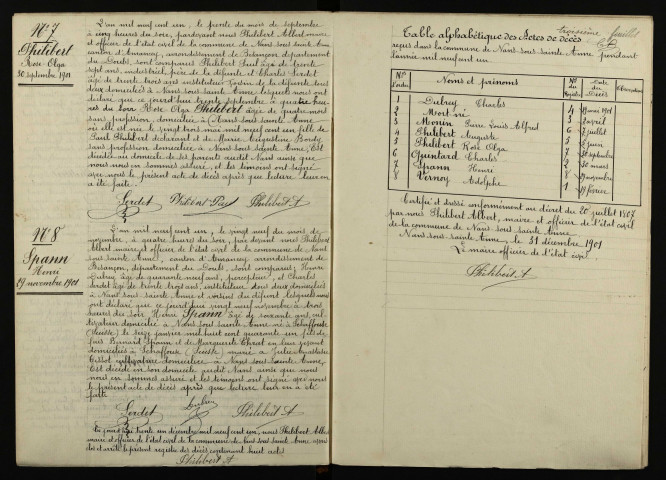 N° 7
Philibert
Rose Olga
30 septembre 1901
L'an mil neuf cent un, le trente du mois de septembre
à cinq heures du soir, pardevant nous Philibert Albert maire
et officier de l'état civil de la commune de Nans sous sainte Anne
canton d'Amancey, arrondissement de Besançon département
du Doubs, sont comparus Philibert Paul âgé de trente
sept ans, industriel, père de la défunte et Charles Sordet
âgé de trente trois ans instituteur voisin de la défunte tous
deux domiciliés à Nans sous sainte Anne, lesquels nous ont
déclaré que ce jourd'hui trente septembre à quatre heures
du soir Rose Olga Philibert âgée de quatre mois
sans profession domiciliée à Nans sous sainte Anne
où elle est née le vingt trois mai mil neuf cent un fille de
Paul Philibert déclarant et de Marie Augustine
sans profession domiciliés à Nans sous sainte Anne, Est
décédée au domicile de ses parents audit Nans ainsi que
nous nous en sommes assuré, et les témoins ont signé
avec nous le présent acte de décès après que lecture leur en
a été faite.
Sordet Philibert Paul Philibert A
N° 8
Spann
Henri
29 novembre 1901
L'an mil neuf cent un, le vingt neuf du mois de
novembre, à quatre heures du soir, pardevant nous Philibert
Albert maire et officier de l'état civil de la commune de Nans
sous sainte Anne, canton d'Amancey arrondissement de
Besançon, département du Doubs, sont comparus, Henri
Dubrey âgé de quarante neuf ans, percepteur, et Charles
Sordet âgé de trente trois ans, instituteur tous deux domiciliés
à Nans sous sainte Anne et voisins du défunt lesquels nous
ont déclaré que ce jourd'hui vingt neuf novembre à trois
heures du soir Henri Spann âgé de soixante ans, cul-
tivateur domicilié à Nans sous sainte Anne né à Schaffouse
(Suisse) le seize janvier mil huit cent quarante un fils de
feus Bernard Spann et de Marguerite en leur vivant
domiciliés à Schaffouse (Suisse), marié à Julie
domiciliée à Nans sous sainte Anne,
Est décédé en son domicile audit, Nans ainsi que nous
nous en sommes assuré et les témoins ont signé avec nous
le présent acte de décès après que lecture leur en a été
faite
Sordet Dubrey Philibert A
Ce jourd'hui trente un décembre mil neuf cent un, nous Philibert Albert
maire et officier de l'état civil de la commune de Nans sous sainte Anne avons
clos et arrêté le présent registre des décès contenant huit actes
Philibert A
troisième feuillet
Table alphabétique des Actes de décès
reçus dans la commune de Nans sous sainte Anne pendant
l'année mil neuf cent un.
N° d'ordre Noms et prénoms N° du Registre Date du Décès Observations
1 Dubrey Charles 4
2 Mort-né 3 2 avril
3 Monin Pierre Louis Alfred 6 7 juillet
4 Philibert Auguste 5 2 juin
5 Philibert Rose Olga 7 30 septembre
6 Quintard Charles 2 30 mars
7 Spann Henri 8 29 novembre
8 Vernoy Adolphe 1 19 février
Certifié et dressé conformément au décret du 20 juillet 1807
par nous Philibert Albert, maire et officier de l'état civil
de la commune de Nans sous sainte Anne
Nans sous sainte Anne, le 31 décembre 1901
Le maire officier de l'état civil
Philibert A